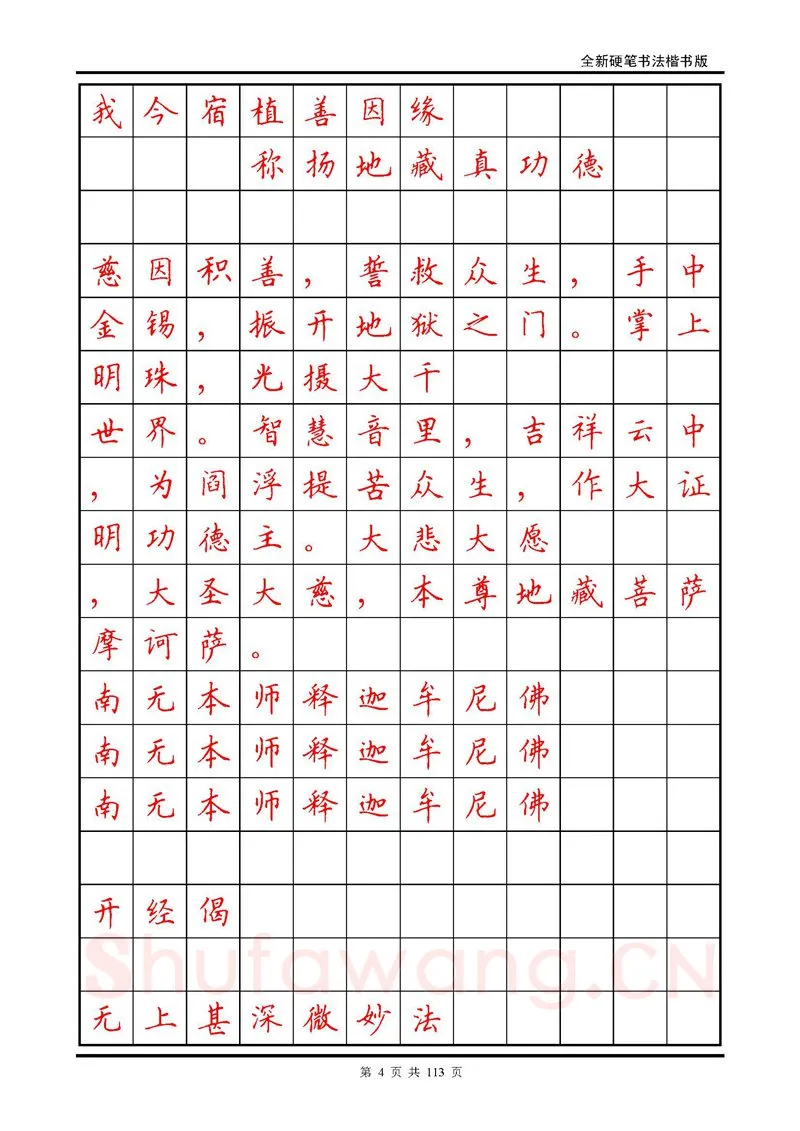 全新硬笔书法楷书版
我今宿植善因缘
称扬地藏真功德
慈因积善，誓救众生，手中
金锡，振开地狱之门。掌上
明珠，光摄大千
世界。智慧音里，吉祥云中
，为阎浮提苦众生，作大证
明功德主。大悲大愿
，大圣大慈，本尊地藏菩萨
摩诃萨。
南无本师释迦牟尼佛
南无本师释迦牟尼佛
南无本师释迦牟尼佛
开经偈
Shufawang.CN
无上甚深微妙法
第 4 页 共 113 页